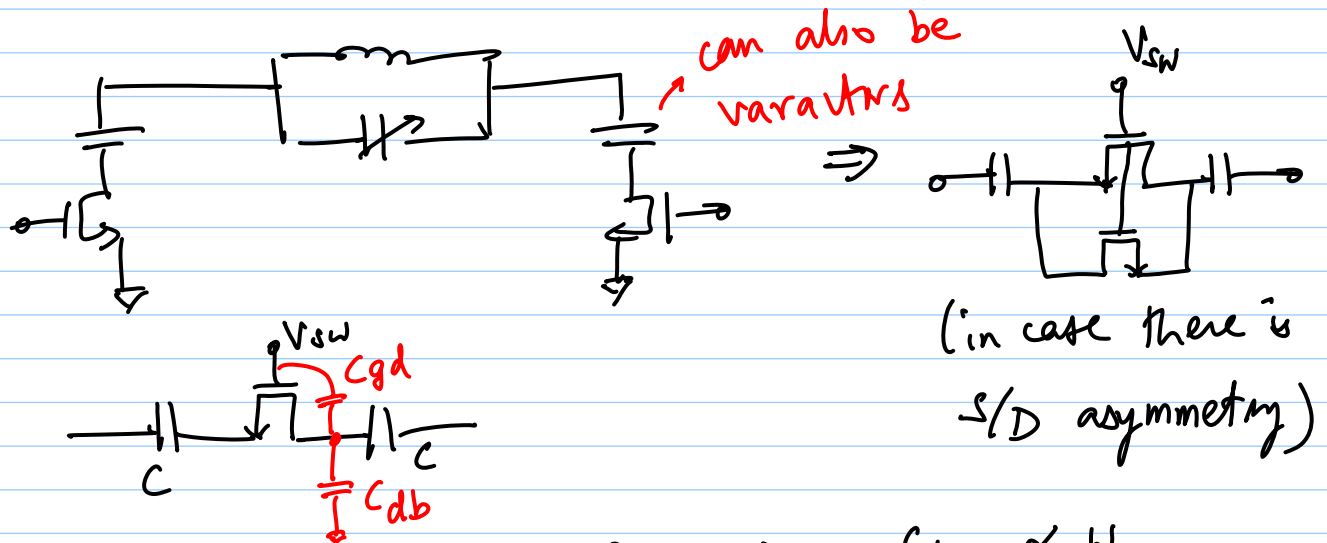 can also be
varactors
VSW
⇒
(in case there is
S/D asymmetry)
VSW
Cgd
C
C
Cdb